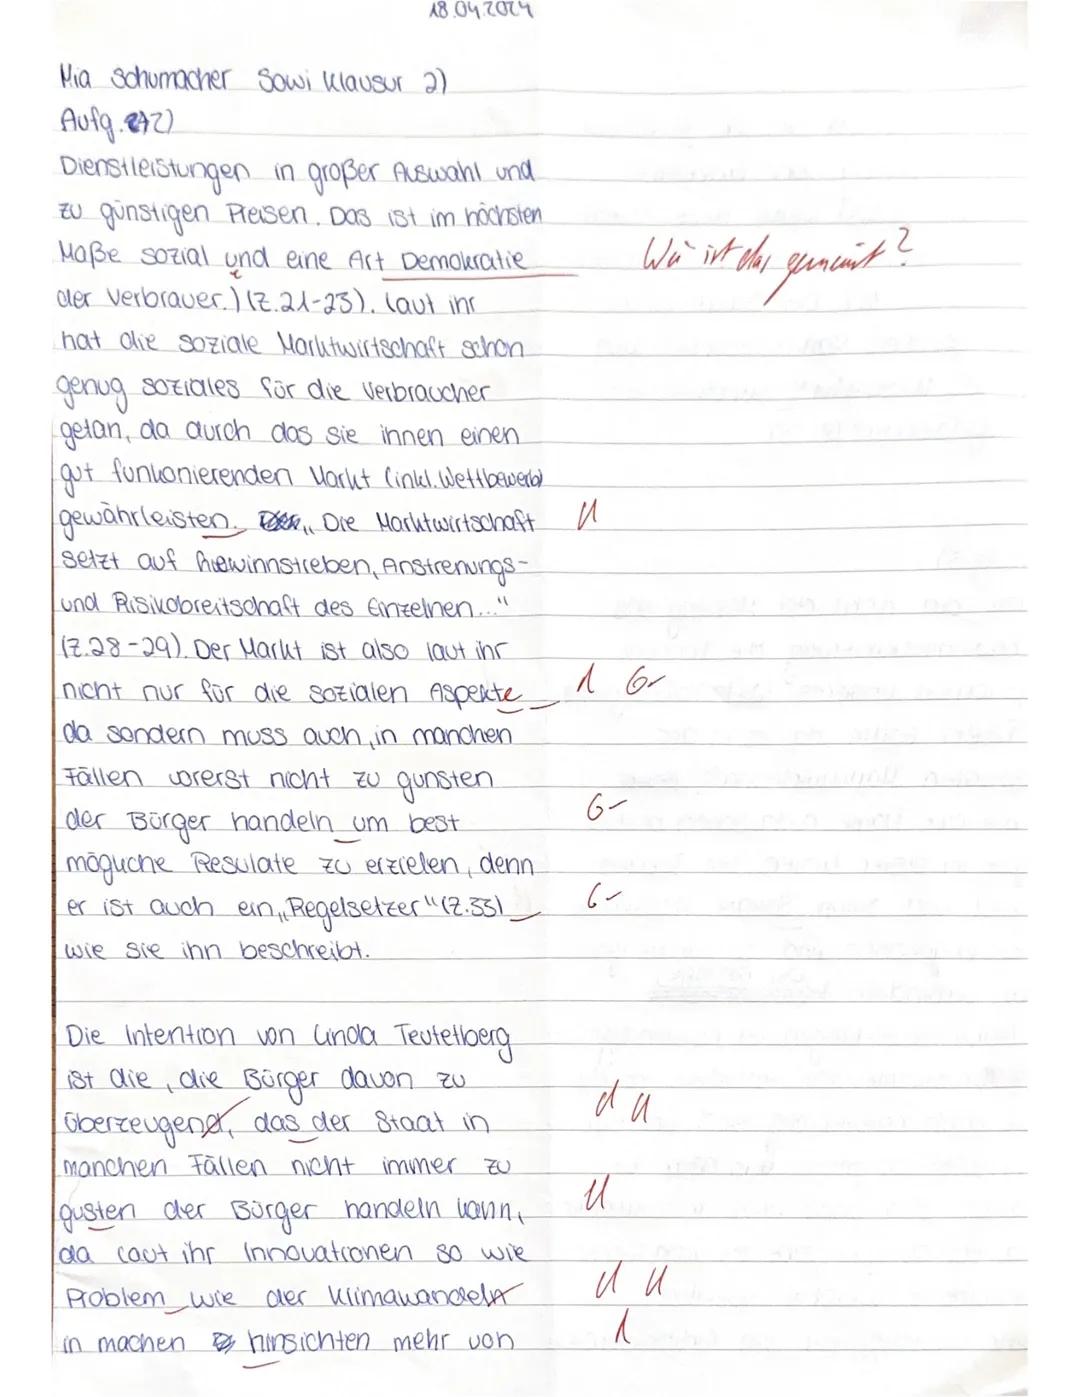 18.04.2024
Mia Schumacher Sowi Klausur 2)
Aufg. 2)
Dienstleistungen in großer Auswahl und
zu günstigen Preisen. Das ist im höchsten
Maße sozial und eine Art Demokratie
Wie ist das gemeint?
der Verbrauer.) (Z.21-23). Laut ihr
hat die soziale Marktwirtschaft schon
genug soziales für die Verbraucher
getan, da durch das sie ihnen einen
gut funkonierenden Markt (inkl. Wettbewerb)
gewährleisten. „Die Marktwirtschaft
setzt auf Gewinnstreben, Anstrenungs-
und Risikobreitschaft des Einzelnen..."
(Z.28-29). Der Markt ist also laut ihr
nicht nur für die sozialen Aspekte
da sondern muss auch, in manchen
Fällen vorerst nicht zu gunsten
der Bürger handeln um best
mögliche Resulate zu erzielen, denn
er ist auch ein „Regelsetzer" (Z.33)
wie sie ihn beschreibt.
Die Intention von Linda Teutelberg
ist die, die Bürger davon zu
überzeugen, das der Staat in
manchen Fällen nicht immer zu
gusten der Bürger handeln kann,
da laut ihr Innovationen so wie
Problem wie der Klimawandeln
in machen hinsichten mehr von